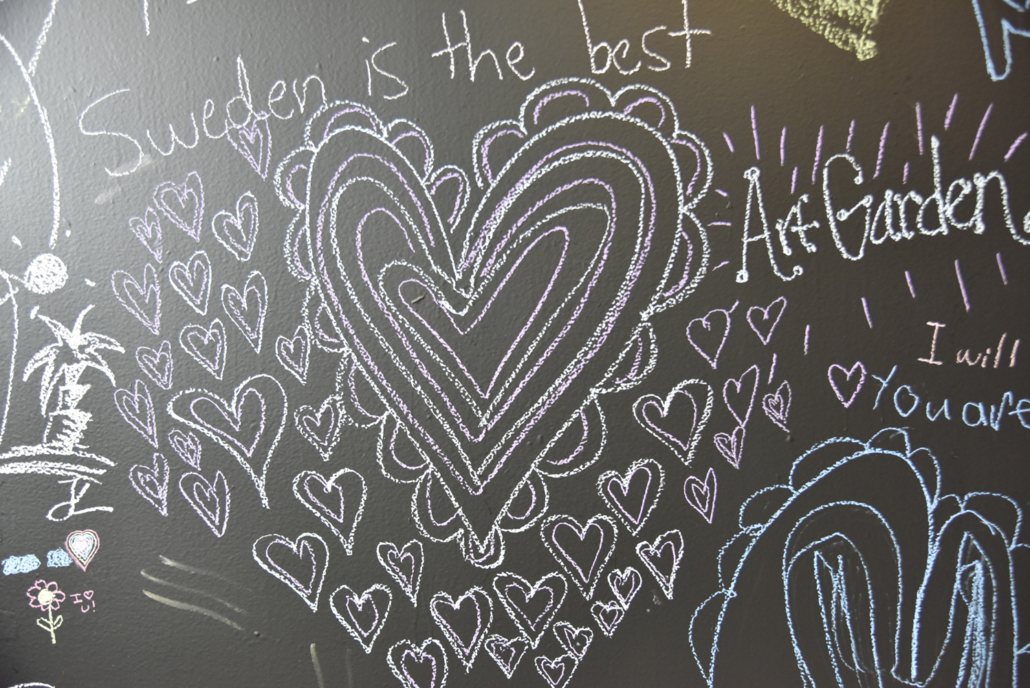 Sweden is the best
Art Garden
I will
You are
I ♡
U!